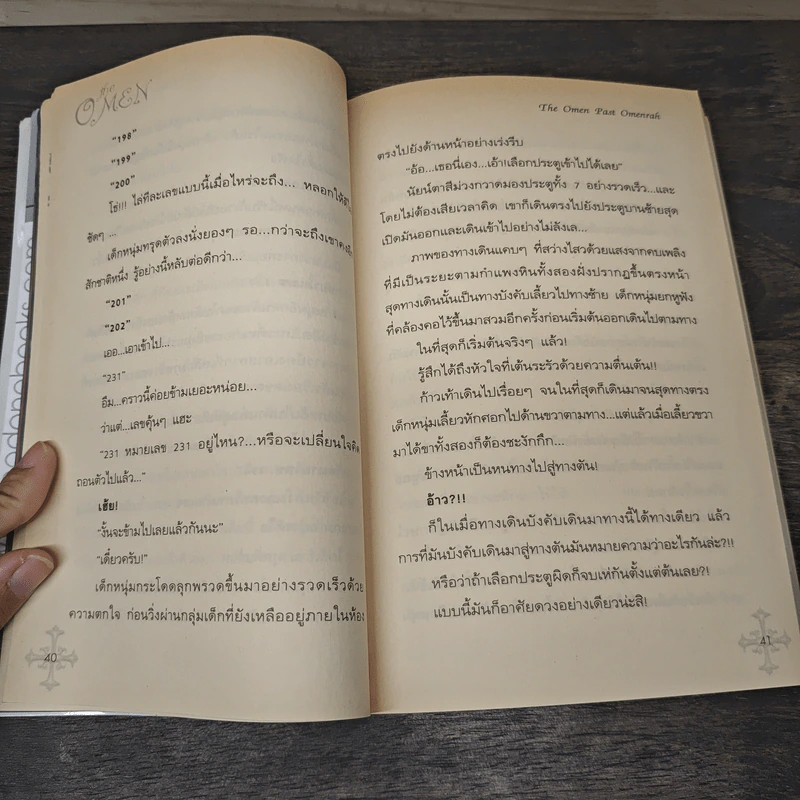 the
OMEN
"198"
"199"
"200"
โธ่!!! ไล่ทีละเลขแบบนี้เมื่อไหร่จะถึง... หลอกให้
ชัดๆ ...
เด็กหนุ่มทรุดตัวลงนั่งยองๆ รอ...กว่าจะถึงเขา
สักชาติหนึ่ง รู้อย่างนี้หลับต่อดีกว่า...
"201"
"202"
เออ...เอาเข้าไป...
"231"
อืม...คราวนี้ค่อยข้ามเยอะหน่อย...
ว่าแต่...เลขคุ้นๆ แฮะ
"231 หมายเลข 231 อยู่ไหน?...หรือจะเปลี่ยนใจคิด
ถอนตัวไปแล้ว..."
เฮ้ย!
"งั้นจะข้ามไปเลยแล้วกันนะ"
"เดี๋ยวครับ!"
เด็กหนุ่มกระโดดลุกพรวดขึ้นมาอย่างรวดเร็วด้วย
ความตกใจ ก่อนวิ่งผ่านกลุ่มเด็กที่ยังเหลืออยู่ภายในห้อง
40
The Omen Past Omenrah
ตรงไปยังด้านหน้าอย่างเร่งรีบ
"อ้อ...เธอนี่เอง...เอ้า!เลือกประตูเข้าไปได้เลย"
นัยน์ตาสีม่วงกวาดมองประตูทั้ง 7 อย่างรวดเร็ว...และ
โดยไม่ต้องเสียเวลาคิด เขาก็เดินตรงไปยังประตูบานซ้ายสุด
เปิดมันออกและเดินเข้าไปอย่างไม่ลังเล...
ภาพของทางเดินแคบๆ ที่สว่างไสวด้วยแสงจากคบเพลิง
ที่มีเป็นระยะตามกำแพงหินทั้งสองฝั่งปรากฏขึ้นตรงหน้า
สุดทางเดินนั้นเป็นทางบังคับเลี้ยวไปทางซ้าย เด็กหนุ่มยกหูฟัง
ที่คล้องคอไว้ขึ้นมาสวมอีกครั้งก่อนเริ่มต้นออกเดินไปตามทาง
ในที่สุดก็เริ่มต้นจริงๆ แล้ว!
รู้สึกได้ถึงหัวใจที่เต้นระรัวด้วยความตื่นเต้น!!
ก้าวเท้าเดินไปเรื่อยๆ จนในที่สุดก็เดินมาจนสุดทางตรง
เด็กหนุ่มเลี้ยวหักศอกไปด้านขวาตามทาง...แต่แล้วเมื่อเลี้ยวขวา
มาได้ขาทั้งสองก็ต้องชะงักกึก...
ข้างหน้าเป็นหนทางไปสู่ทางตัน!
อ้าว?!!
ก็ในเมื่อทางเดินบังคับเดินมาทางนี้ได้ทางเดียว แล้ว
การที่มันบังคับเดินมาสู่ทางตันมันหมายความว่าอะไรกันล่ะ?!!
หรือว่าถ้าเลือกประตูผิดก็จบเห่กันตั้งแต่ต้นเลย?!
แบบนี้มันก็อาศัยดวงอย่างเดียวน่ะสิ!
41